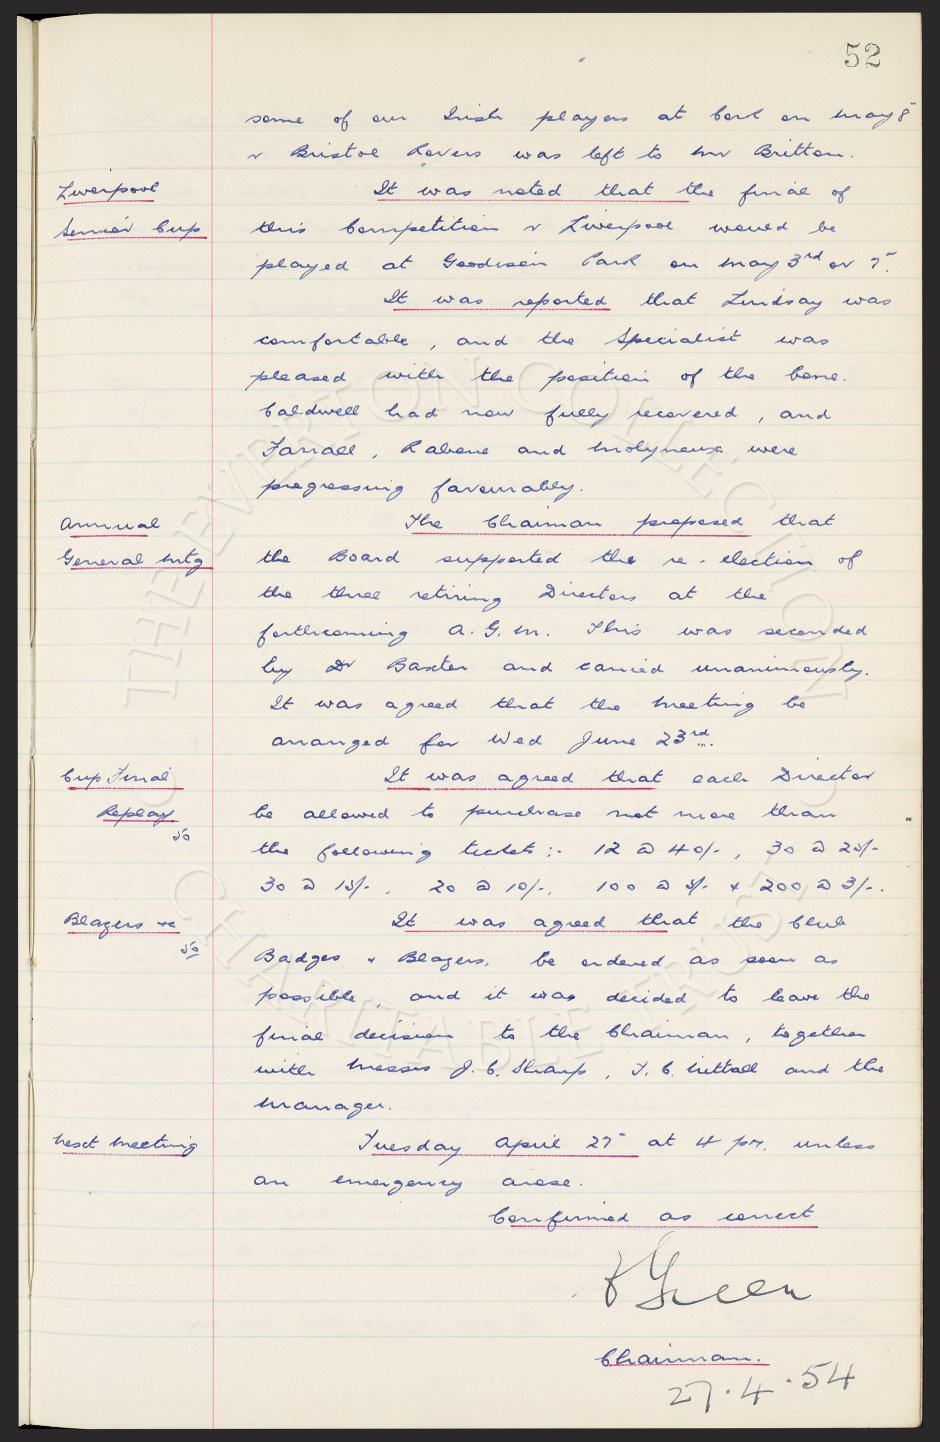 52
some of our Irish players at Cork on May 8
v Bristol Rovers was left to Mr Britton.
Liverpool It was noted that the final of
Senior Cup this Competition v Liverpool would be
played at Goodison Park on May 3rd or 5
It was reported that Lindsay was
comfortable, and the Specialist was
pleased with the position of the bone.
Caldwell had now fully recovered, and
Farrall, Rabone and Molyneux were
progressing favourably.
Annual The Chairman proposed that
General Mtg the Board supported the re-election of
the three retiring Directors at the
forthcoming A.G.M. This was seconded
by Dr Baxter and carried unanimously.
It was agreed that the Meeting be
arranged for Wed June 23rd.
Cup Final It was agreed that each Director
Replay be allowed to purchase not more than
the following tickets :- 12 @ 40/-, 30 @ 25/-
30 @ 15/-, 20 @ 10/-, 100 @ 5/- + 200 @ 3/-.
Blazers +c It was agreed that the Club
Badges + Blazers, be ordered as soon as
possible, and it was decided to leave the
final decision to the Chairman, together
with Messrs J.C. Sharp, T.C. Nuttall and the
Manager.
Next Meeting Tuesday April 27 at 4 pm. unless
an emergency arose.
Confirmed as correct
Green
Chairman.
27.4.54
THE EVERTON COLLECTION
CHARITABLE TRUST